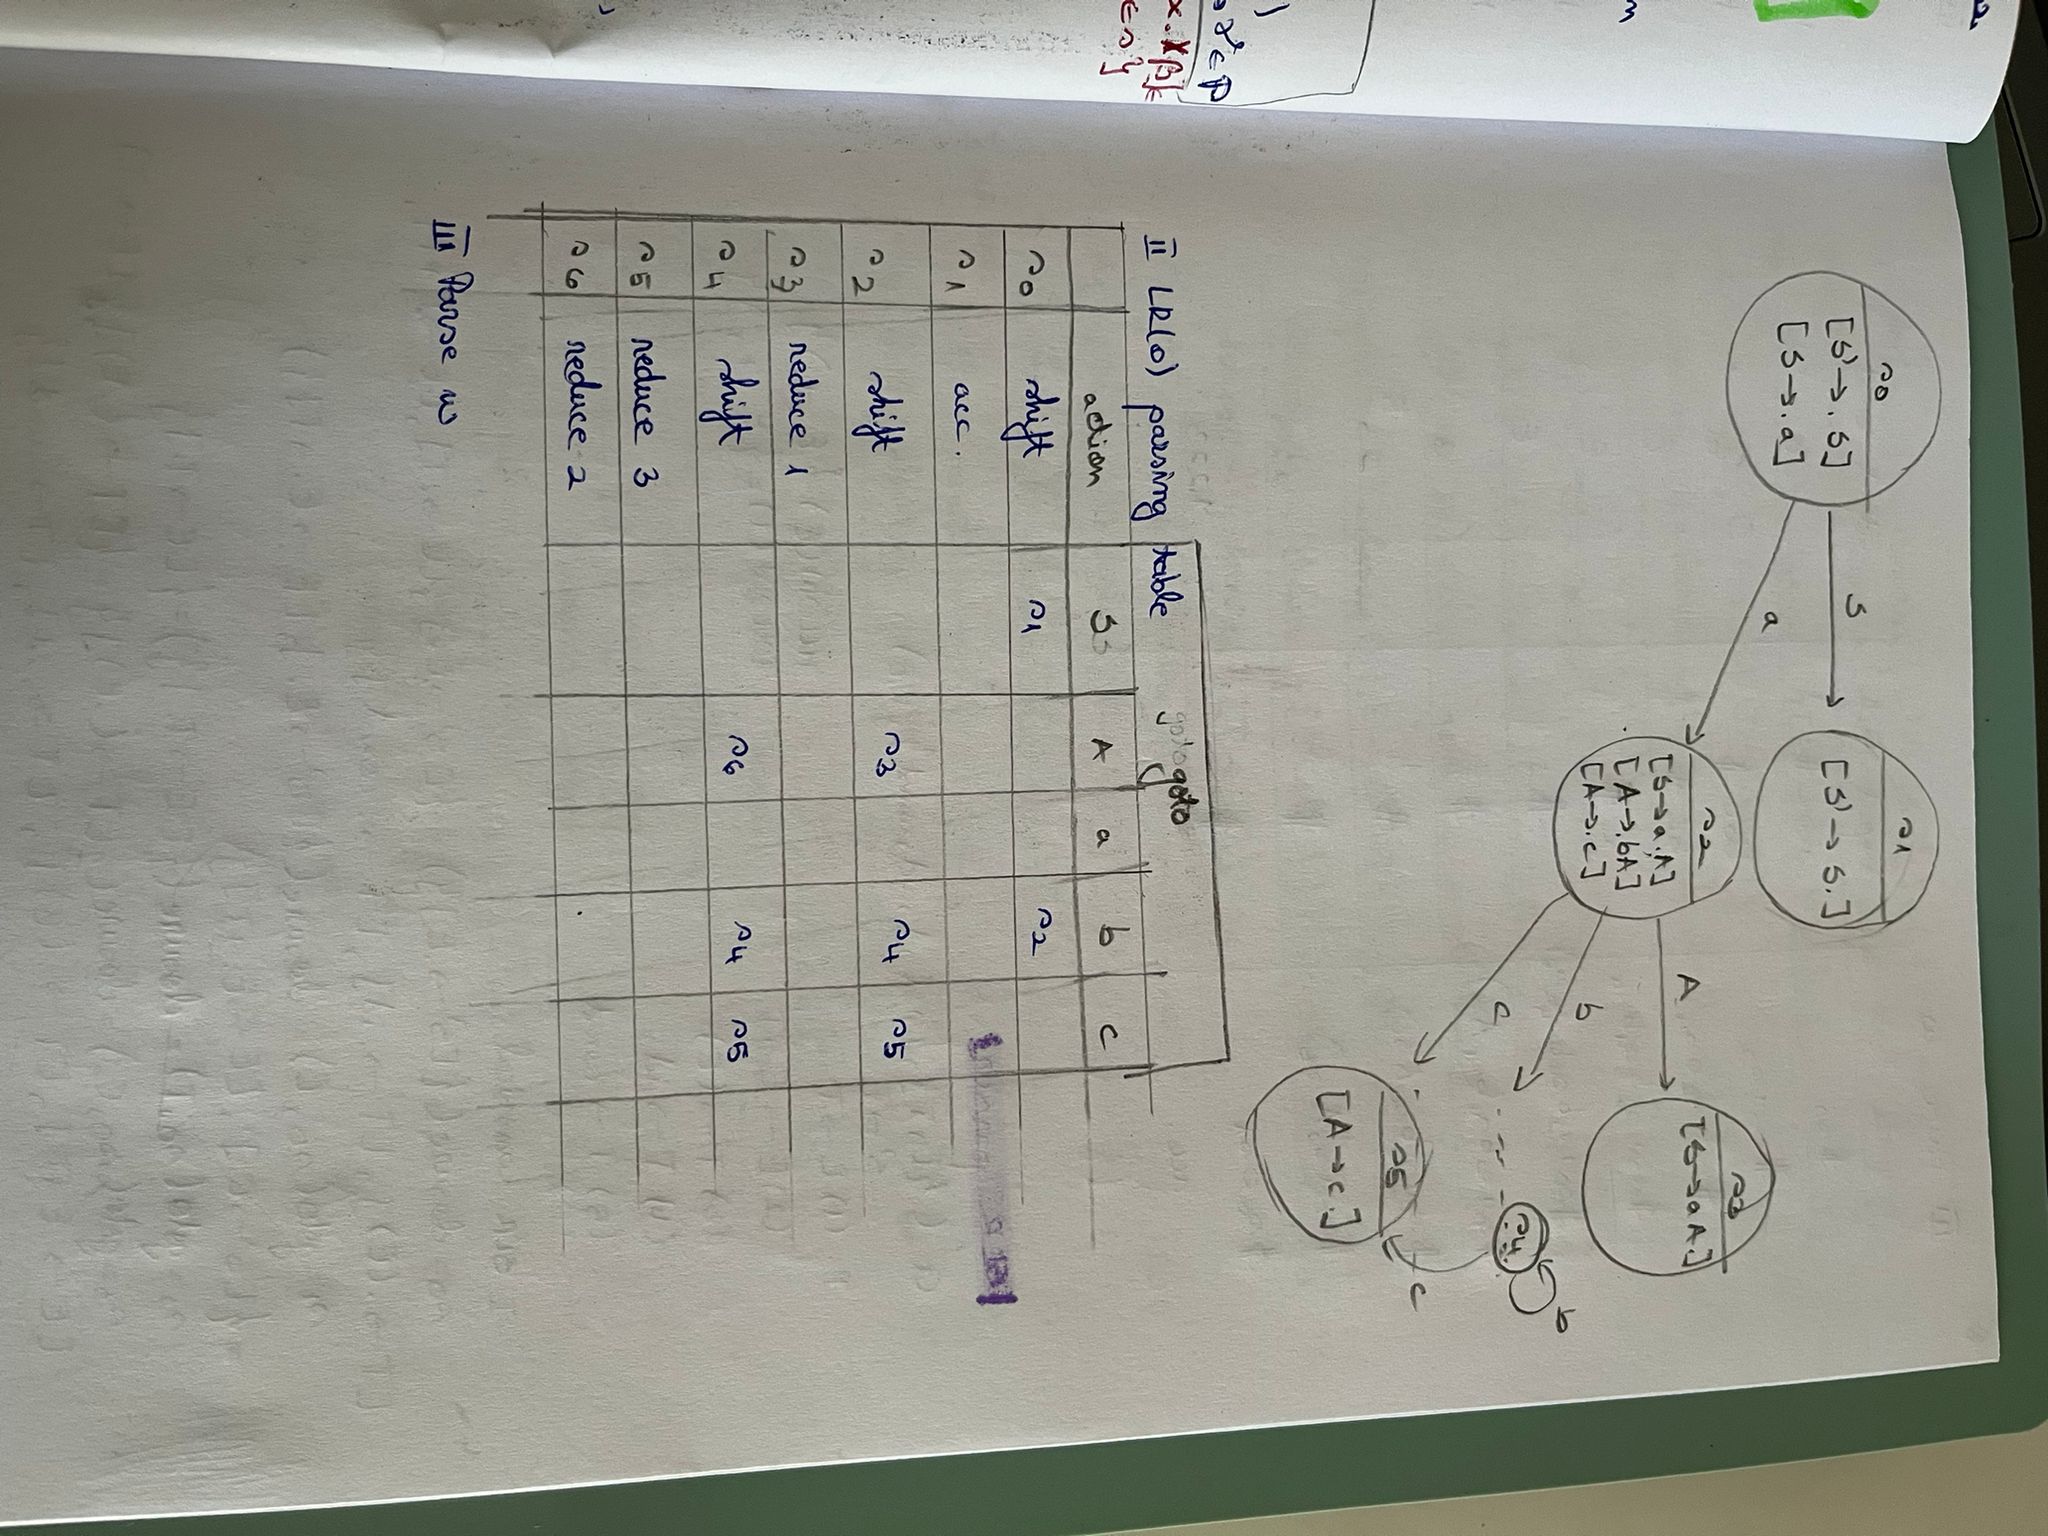 s0
[S'→. S]
[S→. a]
S
a
s1
[S'→ S.]
s2
[S→a.A]
[A→.bA]
[A→.c]
A
b
c
s3
[S→aA.]
s4
b
c
s5
[A→c.]
II LR(0) parsing table
goto
action S A a b c
s0 shift s1 s2
s1 acc.
s2 shift s3 s4 s5
s3 reduce 1
s4 shift s6 s4 s5
s5 reduce 3
s6 reduce 2
III Parse w